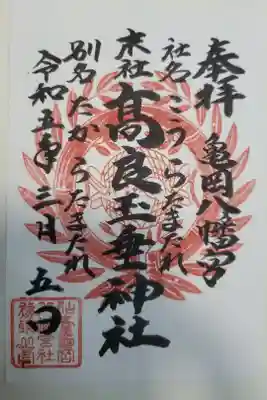 奉拝 亀岡八幡宮
社名 こうらたまたれ
末社 髙良玉垂神社
別名 たからたまたれ
令和五年三月五日